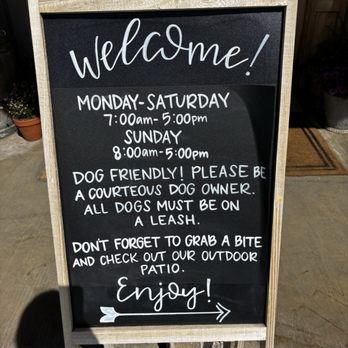 Welcome!
MONDAY-SATURDAY
7:00am-5:00pm
SUNDAY
8:00am-5:00pm
DOG FRIENDLY! PLEASE BE
A COURTEOUS DOG OWNER.
ALL DOGS MUST BE ON
A LEASH.
DON'T FORGET TO GRAB A BITE
AND CHECK OUT OUR OUTDOOR
PATIO.
Enjoy!